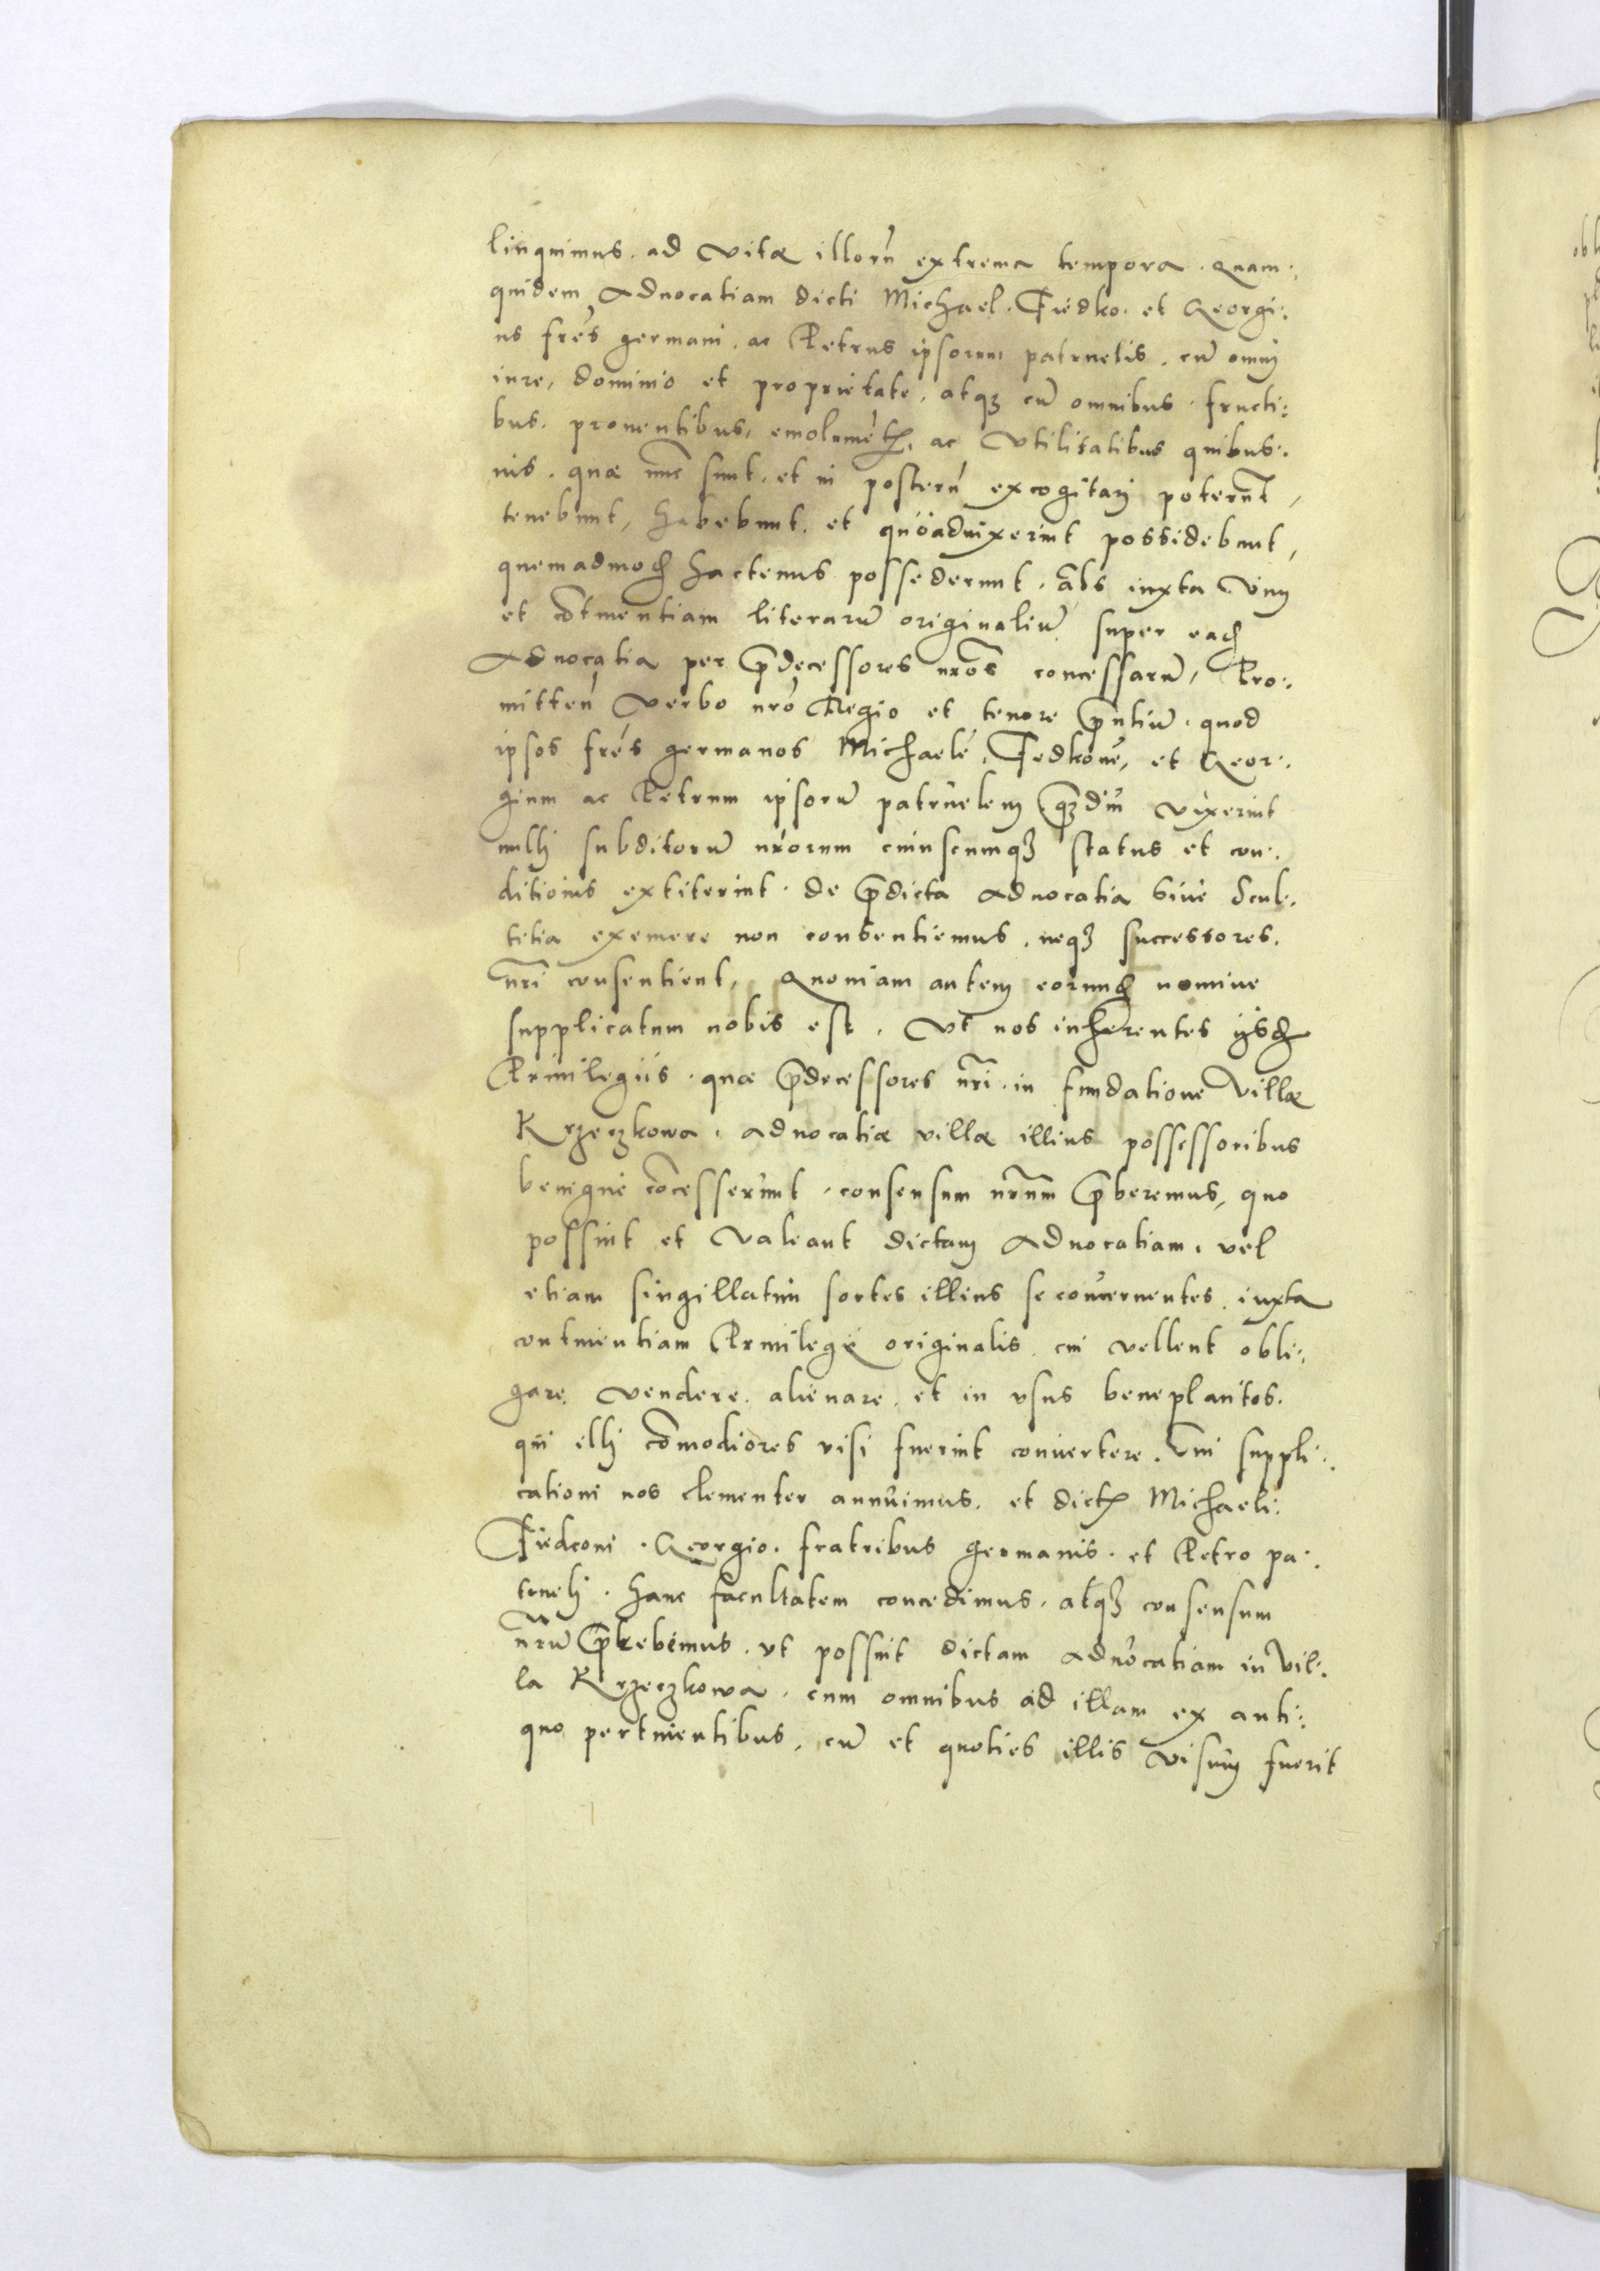 linquimus. ad vitæ illorũ extrema tempora. Quam:
quidem Aduocatiam dicti Michael. Fiedko. et Georgi:
us frẽs germani. ac Petrus ipsorum patruelis. cũ omni
iure, dominio et proprietate, atqȝ cũ omnibus. fructi:
bus. prouentibus, emolumẽtꝭ, ac vtilitatibus quibus:
uis. quæ nũc sunt. et in posterũ excogitari poterũt,
tenebunt, habebunt. et quoaduixerint possidebunt,
quemadmoꝺ hactenus possederunt. iuxta vim
et cõtinentiam literarũ originaliũ super eaꝺ
Aduocatia per p̃decessores nr̃os concessarũ, Pro:
mitteñ verbo nr̃o Regio et tenore p̃ntiũ. quod
ipsos frẽs germanos Michaelẽ, Fedkonẽ, et Geor:
gium ac Petrum ipsorũ patruelem qȝdiu vixerint
nulli subditorũ nr̃orum cuiuscumqȝ status et con:
ditionis extiterint. de p̃dicta Aduocatia siue Scul:
tetia exemere non consentiemus. neqȝ successores.
nr̃i consentient, Quoniam autem eorunꝺ nomine
supplicatum nobis est, Vt nos inhærentes ijsꝺ
Priuilegiis. quæ p̃decessores nr̃i. in fundatione Villæ
Krzeczkowa. aduocatiæ villæ illius possessoribus
benigne cõcesserunt. consensum nr̃um p̃beremus, quo
possint et valeant dictam Aduocatiam. vel
etiam singillatim sortes illius se concernentes. iuxta
continentiam Priuilegii originalis. cui vellent obli:
gare. vendere. alienare. et in vsus beneplacitos.
qui illi cõmodiores visi fuerint conuertere. Cui suppli:
cationi nos clementer annuimus. et dictꝭ Michaeli:
Fiedconi. Georgio. fratribus germanis. et Petro pa:
trueli. hanc facultatem concedimus. atqȝ consensum
nr̃ũ p̃bebimus. vt possint dictam aduocatiam in Vil:
la Krzeczkowa. cum omnibus ad illam ex anti:
quo pertinentibus. cũ et quoties illis visum fuerit